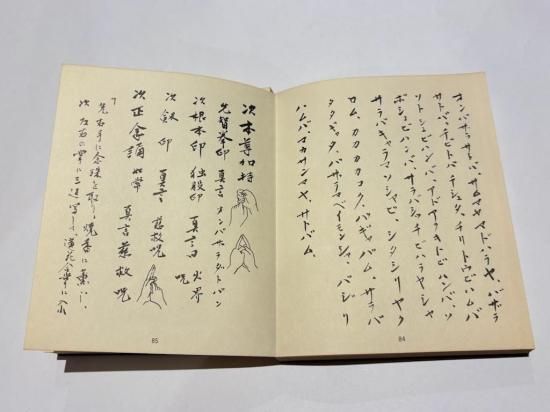 オンバザラサトバ、サムマヤ、マドハラヤ、バザラ
サトバ、チビトバ、チシュタ、チリトウビハムバ
ソトシュビハンバ、アドアラキトビハンバ、ソ
ボシュビハンバ、サラバシッチビハラヤシャ
サラバキャラマソシャビ、シタシリヤク
ロム、カカカカコク、バギャバム、サラバ
タタギャタ、バザラマベイモンシャ、バシリ
ハムバ、マカサンマヤ、サトバム、
84
次本尊加持
先智拳印 真言 オンバサラダトバン
次根本印 独股印 真言曰 火界
呪
次剱印 真言 慈救呪
次正念誦 如常 真言 慈救呪
先右手に念珠を取り焼香に薫じ、
次左右の掌に三返 蓮花合掌に入
85